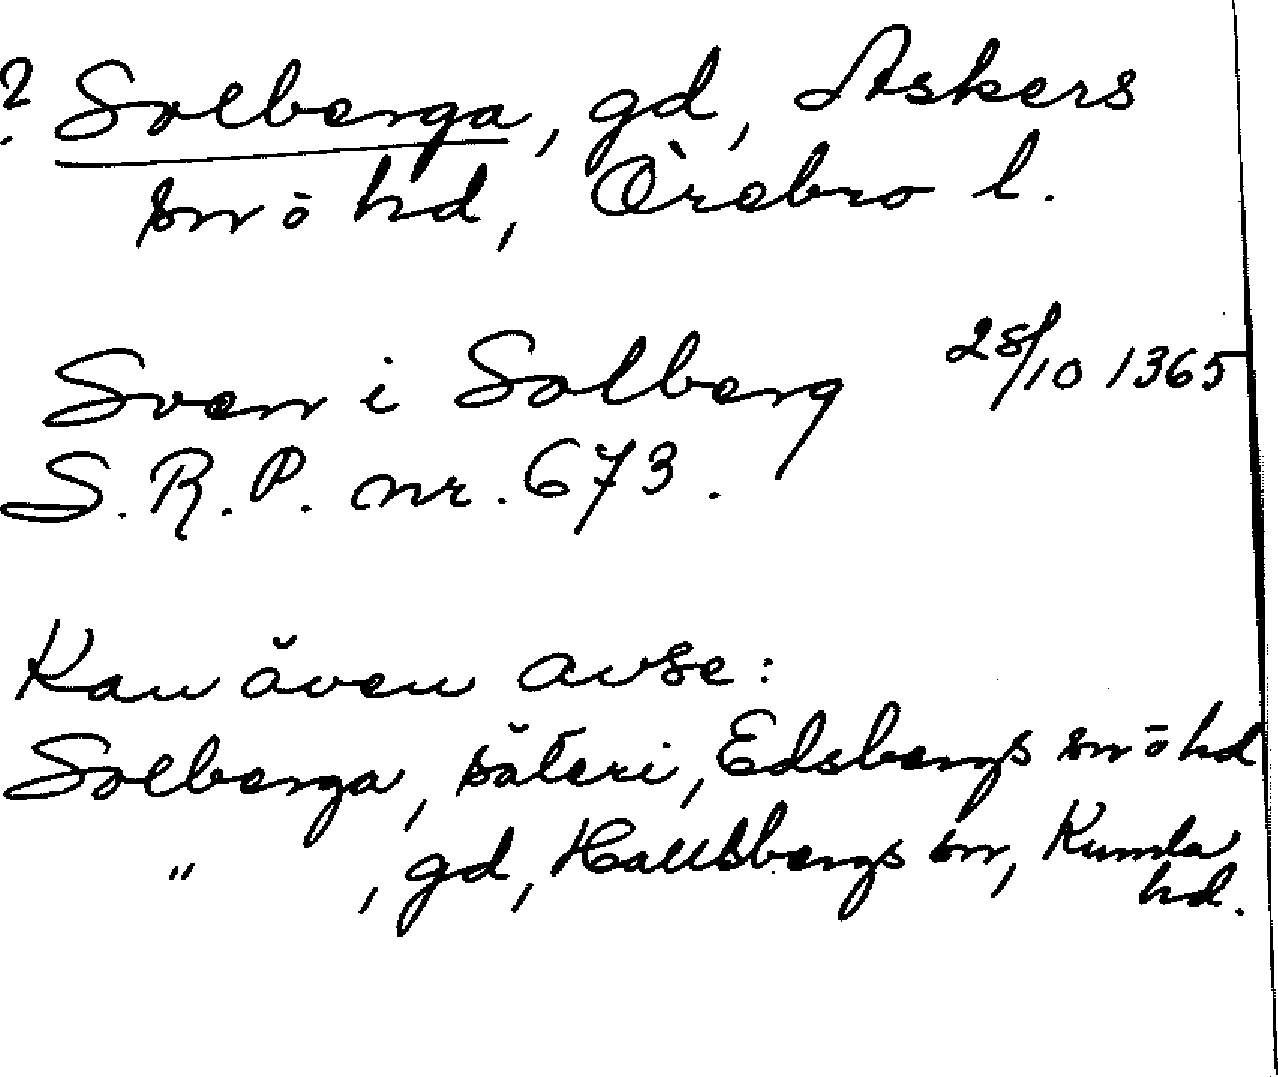 ? Solberga, gd, Askers
sn ō hd, Örebro l.
Sven i Solberg 28/10 1365
S.R.P. nr. 673.
Kan även avse:
Solberga, säteri, Edsbergs sn ō hd
" , gd, Hallsbergs sn, Kumla
hd.